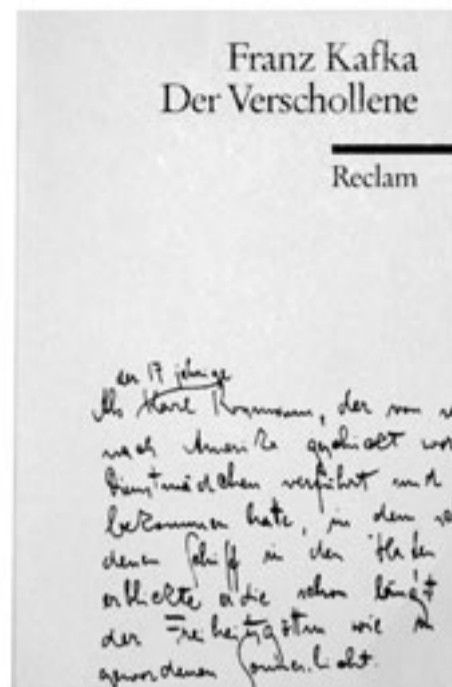 Franz Kafka
Der Verschollene
Reclam
der 17 jährige
Als Karl Rossmann, der von
nach Amerika geschickt wor
Dienstmädchen verführt und
bekommen hatte, in dem
denen Schiff in den Hafen
erblickte er die schon längst
der Freiheitsgöttin wie in
gewordenen Sonnenlicht.